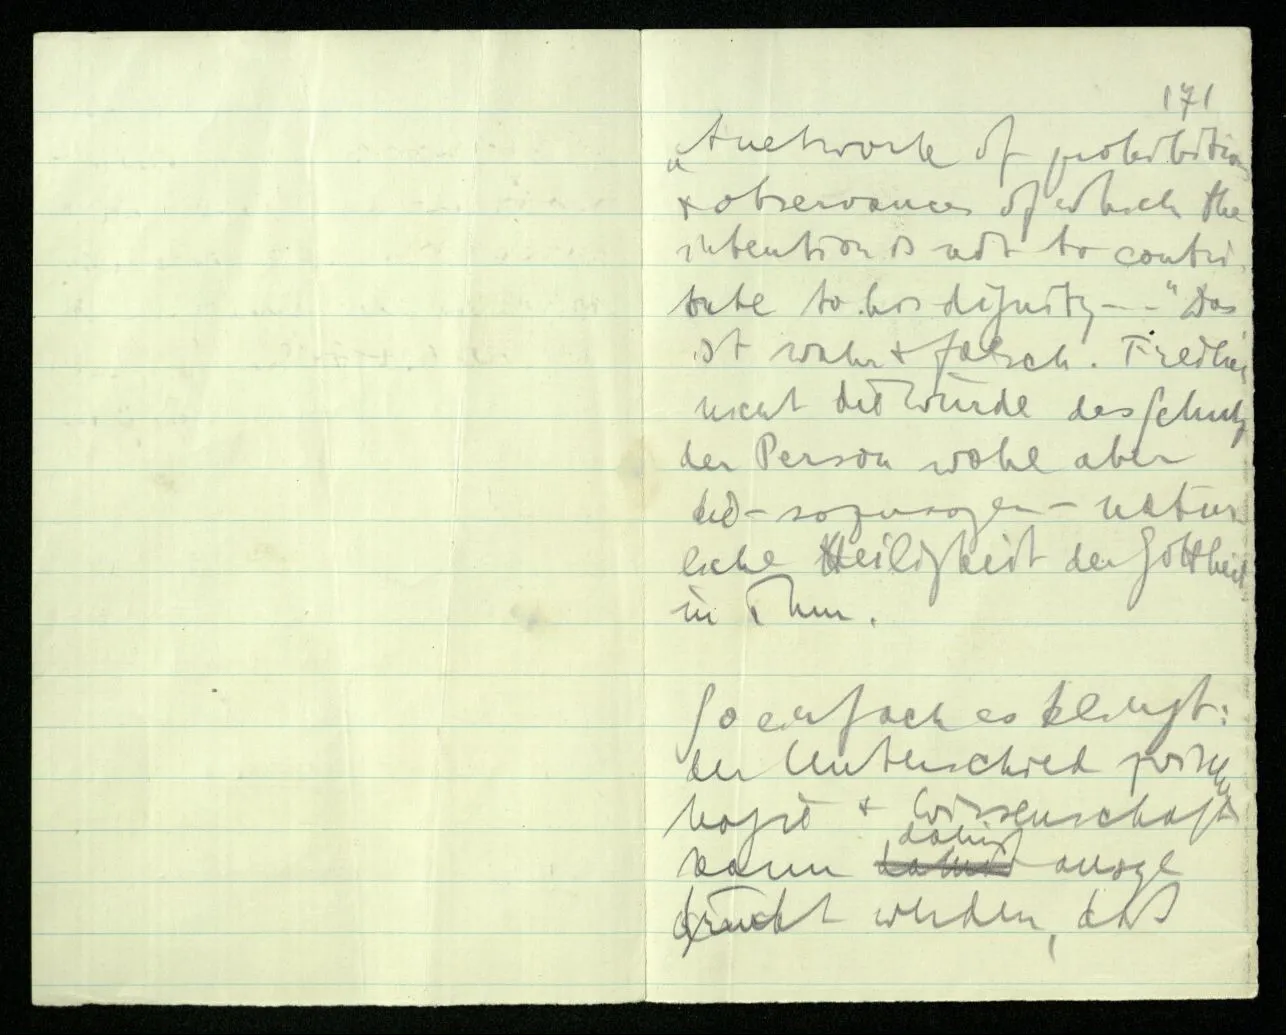 171
„A network of prohibitions
+ observances of which the
intention is not to contri-
bute to his dignity – – “ Das
ist wahr + falsch. Freilich
nicht die Würde des Schutz
der Person wohl aber
die – sozusagen – natür
liche Heiligkeit der Gottheit
in ihm.
So einfach es klingt:
der Unterschied zwischen
Magie + Wissenschaft
kann dahin ausge
drückt werden, daß